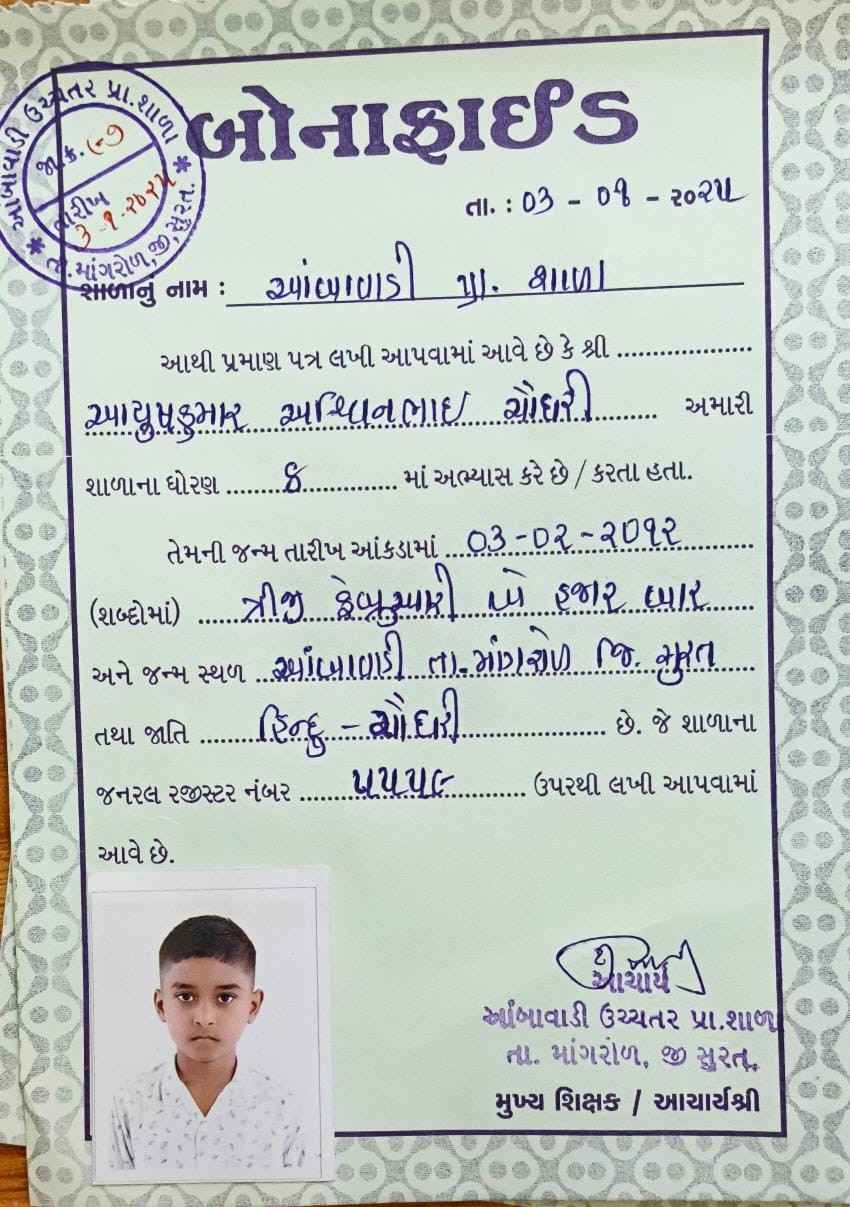 આંબાવાડી ઉચ્ચતર પ્રા.શાળા
જા.ક્ર.
તારીખ
૩-૧-૨૦૨૫
તા. માંગરોળ, જી, સુરત.
બોનાફાઈડ
તા. : ૦૩ - ૦૧ - ૨૦૨૫
શાળાનું નામ : આંબાવાડી પ્રા. શાળા
આથી પ્રમાણ પત્ર લખી આપવામાં આવે છે કે શ્રી ....................
આયુષકુમાર અશ્વિનભાઇ ચૌધરી ........ અમારી
શાળાના ધોરણ ........ ૮ ............. માં અભ્યાસ કરે છે / કરતા હતા.
તેમની જન્મ તારીખ આંકડામાં ... ૦૩-૦૨-૨૦૧૨
(શબ્દોમાં) ...... ત્રીજી ફેબ્રુઆરી બે હજાર બાર
અને જન્મ સ્થળ .. આંબાવાડી તા. માંગરોળ જિ. સુરત
તથા જાતિ ......... હિન્દુ - ચૌધરી .................... છે. જે શાળાના
જનરલ રજીસ્ટર નંબર ........ ૫૫૫૯ ........... ઉપરથી લખી આપવામાં
આવે છે.
આચાર્ય
આંબાવાડી ઉચ્ચતર પ્રા.શાળા
તા. માંગરોળ, જી સુરત.
મુખ્ય શિક્ષક / આચાર્યશ્રી